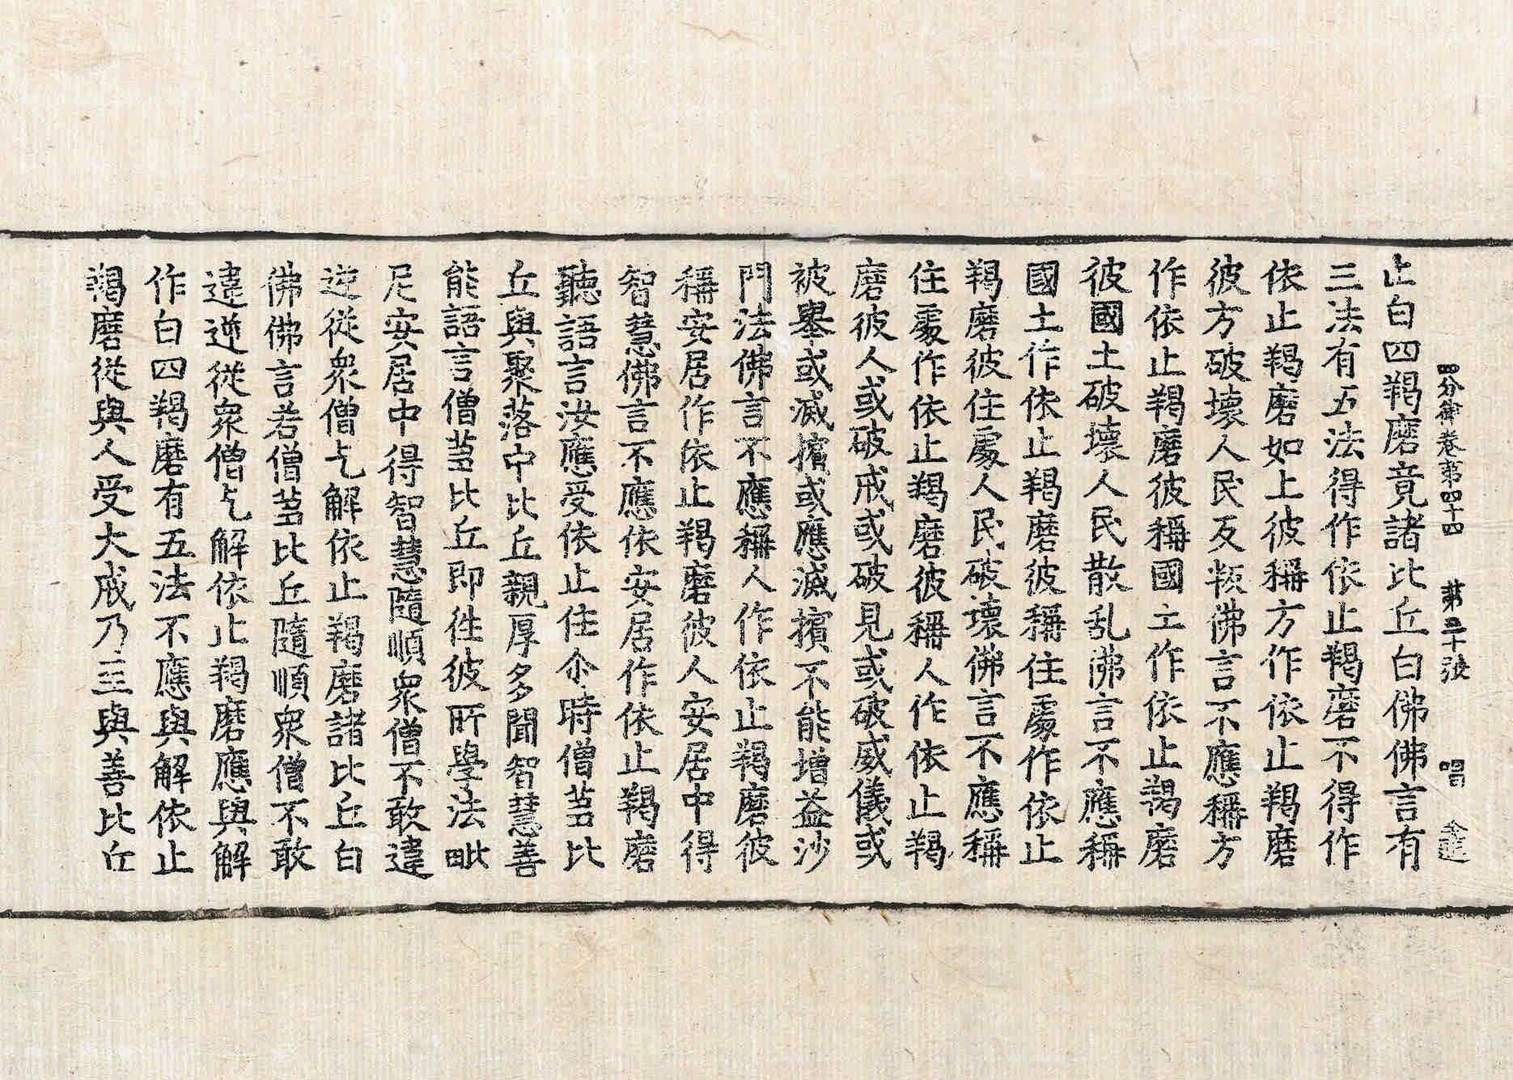 四分律卷第四十四 第三十張 唱
止白四羯磨竟諸比丘白佛佛言有
三法有五法得作依止羯磨不得作
依止羯磨如上彼稱方作依止羯磨
彼方破壞人民反叛佛言不應稱方
作依止羯磨彼稱國土作依止羯磨
彼國土破壞人民散乱佛言不應稱
國土作依止羯磨彼稱住處作依止
羯磨彼住處人民破壞佛言不應稱
住處作依止羯磨彼稱人作依止羯
磨彼人或破戒或破見或破威儀或
被舉或滅擯或應滅擯不能增益沙
門法佛言不應稱人作依止羯磨彼
稱安居作依止羯磨彼人安居中得
智慧佛言不應依安居作依止羯磨
聽語言汝應受依止住尒時僧芻比
丘與聚落中比丘親厚多聞智慧善
能語言僧芻比丘即往彼所學法毗
尼安居中得智慧隨順眾僧不敢違
逆從眾僧乞解依止羯磨諸比丘白
佛佛言若僧芻比丘隨順眾僧不敢
違逆從眾僧乞解依止羯磨應與解
作白四羯磨有五法不應與解依止
羯磨從與人受大戒乃至與善比丘